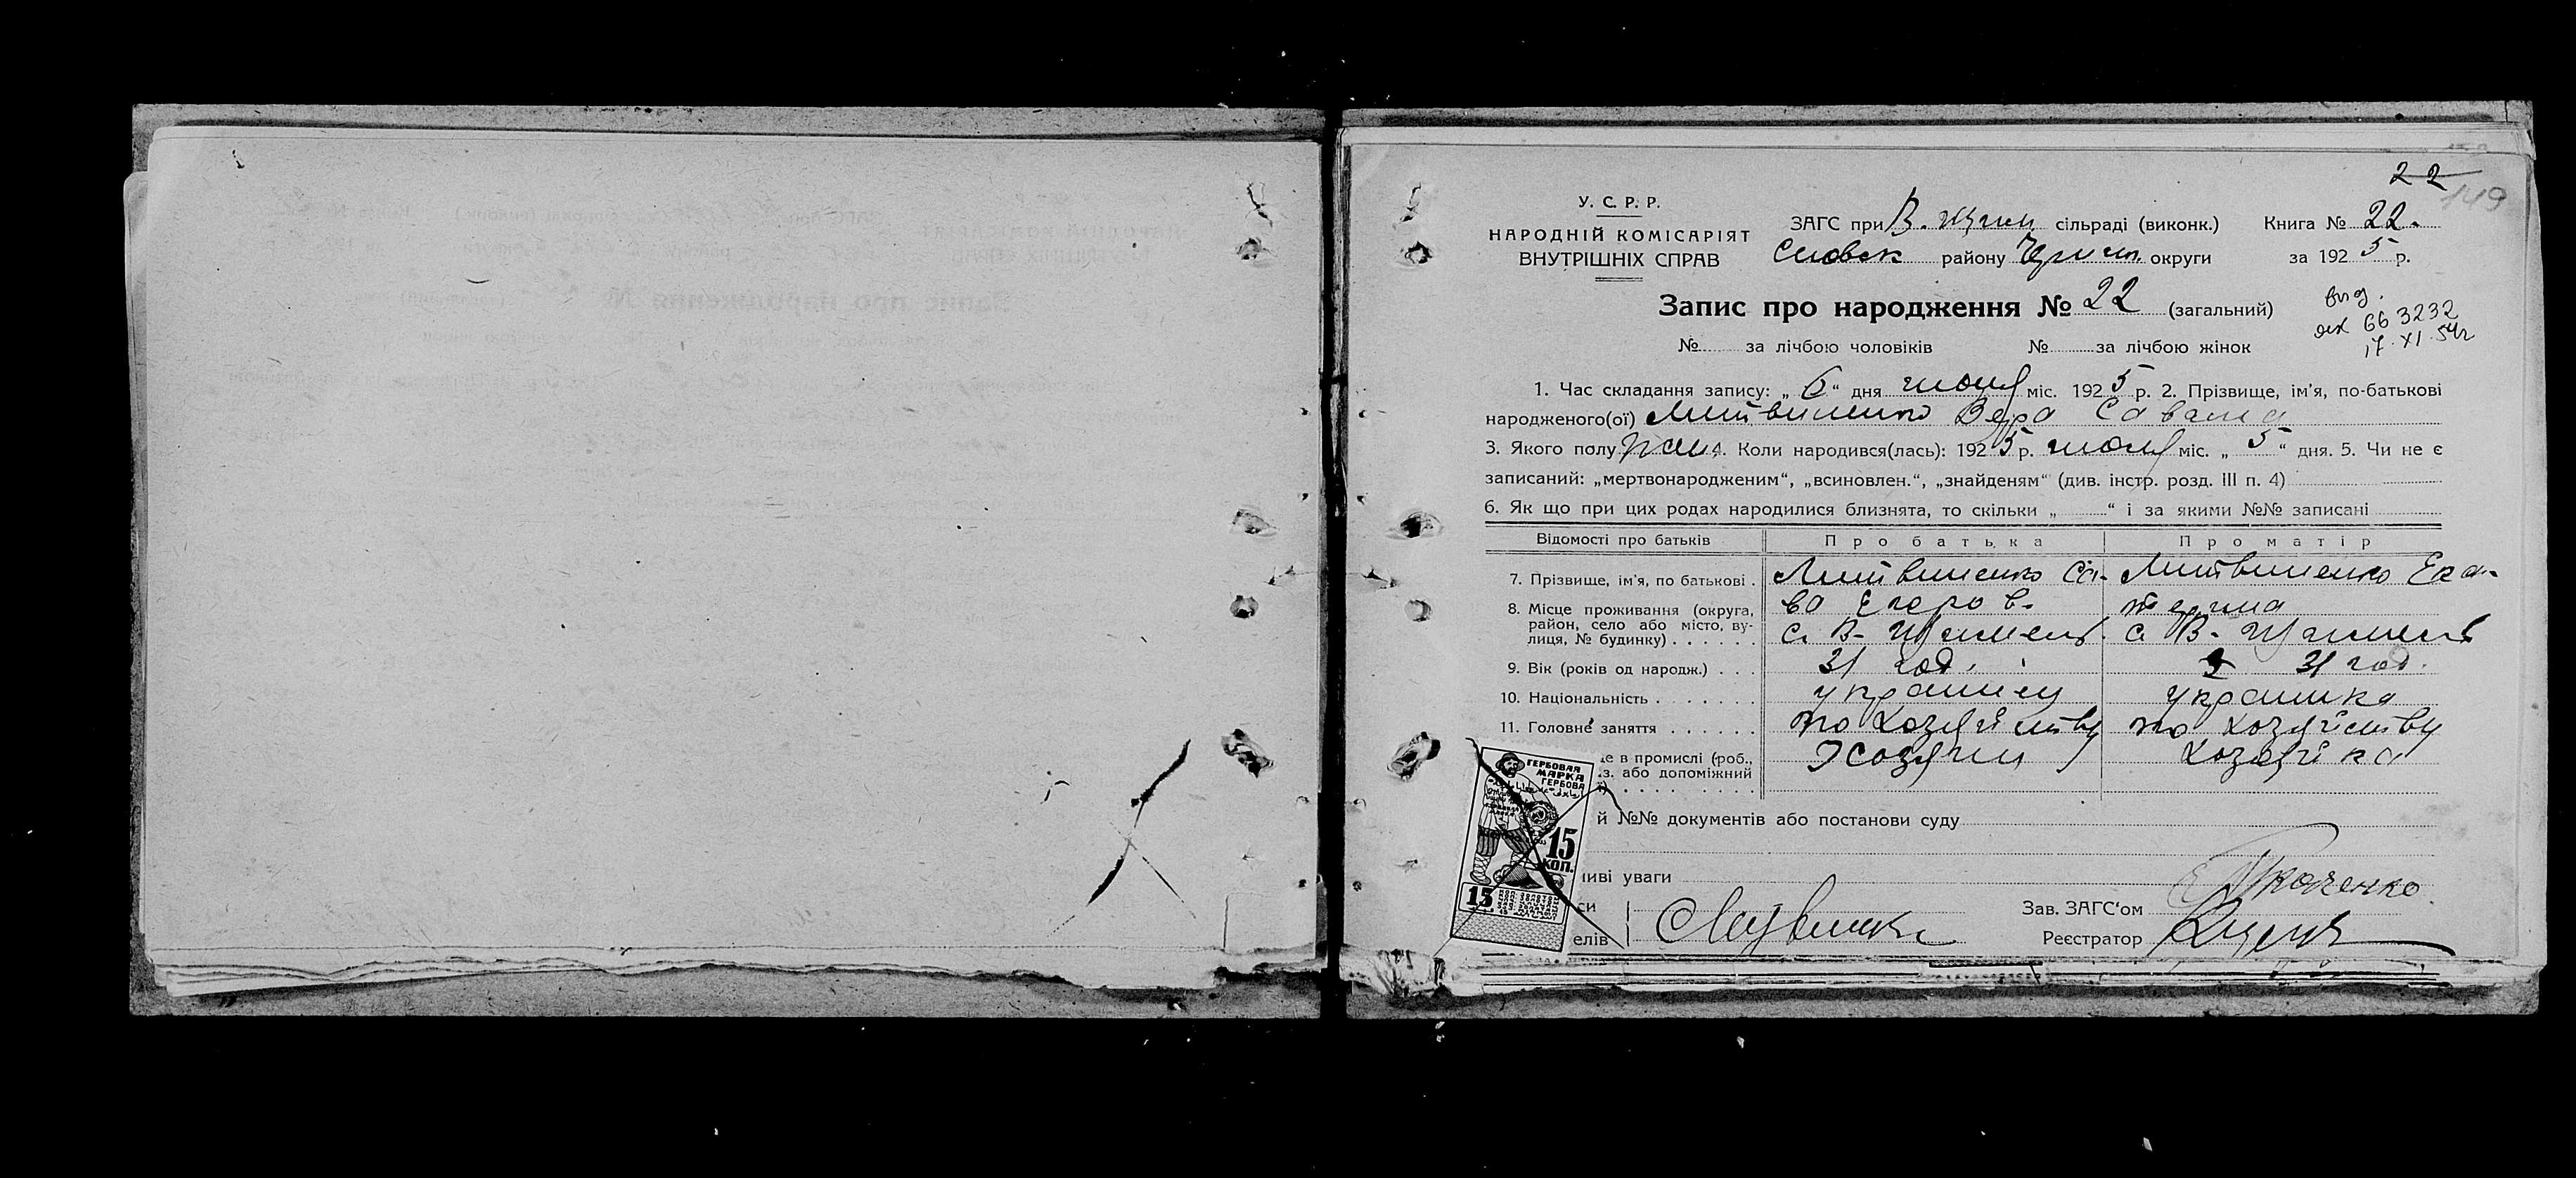 22
149
У. С. Р. Р.
НАРОДНІЙ КОМІСАРІЯТ
ВНУТРІШНІХ СПРАВ
ЗАГС при В. сільраді (виконк.) Книга № 22.
Сновск району Черниг. округи за 1925 р.
Запис про народження № 22 (загальний)
№ за лічбою чоловіків № за лічбою жінок
выд.
66 3232
17.XI.54г
1. Час складання запису: „6“ дня июня міс. 1925 р. 2. Прізвище, ім'я, по-батькові
народженого(ої) Литвиненко Вера Савовна
3. Якого полу жен 4. Коли народився(лась): 1925 р. июня міс. „5“ дня. 5. Чи не є
записаний: „мертвонародженим“, „всиновлен.“, „знайденям“ (див. інстр. розд. III п. 4)
6. Як що при цих родах народилися близнята, то скільки „ “ і за якими №№ записані
Відомості про батьків Про батька Про матір
7. Прізвище, ім'я, по батькові . Литвиненко Са- Литвиненко Ека-
8. Місце проживання (округа, ва Егоров. терина
район, село або місто, ву-
лиця, № будинку) . . . . . с. В- с. В-
9. Вік (років од народж.) . . . 31 год. 31 год.
10. Національність . . . . . . . украинец украинка
11. Головне заняття . . . . . . по хозяйству по хозяйству
е в промислі (роб., Хозяин хозяйка
з. або допоміжний
й №№ документів або постанови суду
ГЕРБОВАЯ
МАРКА
ГЕРБОВА
15
КОП.
15
иві уваги
си
Зав. ЗАГС'ом Ткаченко
елів
Реєстратор